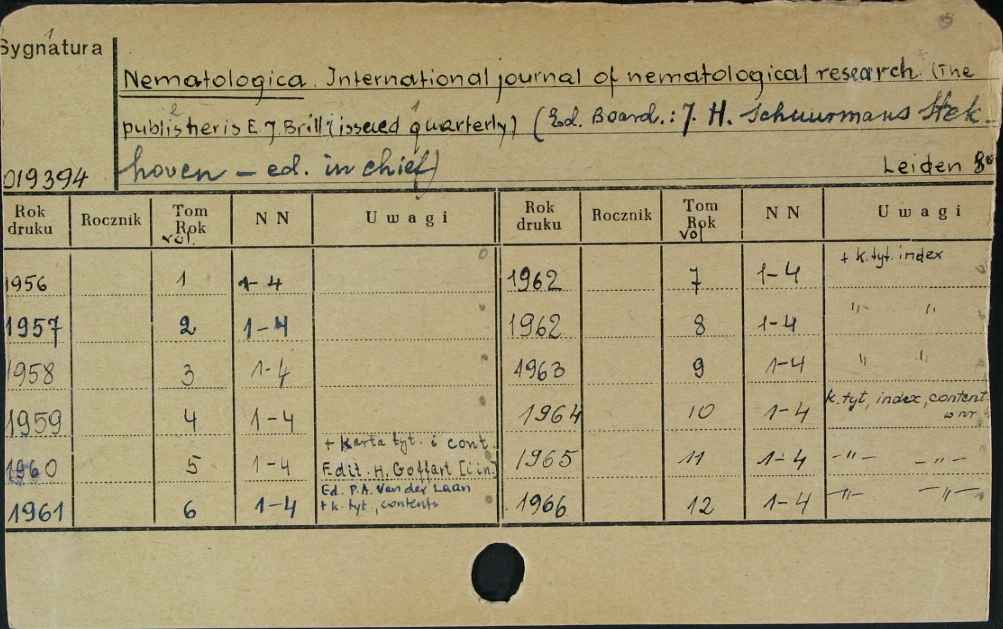 Sygnatura
Nematologica. International journal of nematological research. (The
publisher is E. J. Brill) (issued quarterly) (Ed. Board.: J. H. Schuurmans Stek-
hoven - ed. in chief)
Leiden 8°
019394
Rok druku Rocznik Tom Rok vol. NN Uwagi Rok druku Rocznik Tom Rok vol NN Uwagi
1956 1 1-4 1962 7 1-4 + k. tyt. index
1957 2 1-4 1962 8 1-4 " "
1958 3 1-4 1963 9 1-4 " "
1959 4 1-4 1964 10 1-4 k. tyt, index, content w nr 4
1960 5 1-4 + Karta tyt. i cont. Edit. H. Goffart [i in.] 1965 11 1-4 -"- -"-
1961 6 1-4 Ed. P.A. Van der Laan + k. tyt., contents 1966 12 1-4 -"- -"-